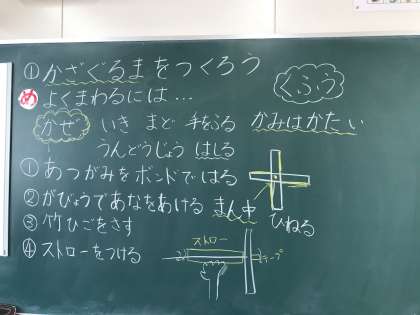 ① かざぐるまをつくろう
くふう
め よくまわるには…
かぜ いき まど 手をふる かみはかたい
うんどうじょう はしる
① あつがみをボンドではる
② がびょうであなをあける まん中 ひねる
③ 竹ひごをさす
④ ストローをつける
ストロー
テープ